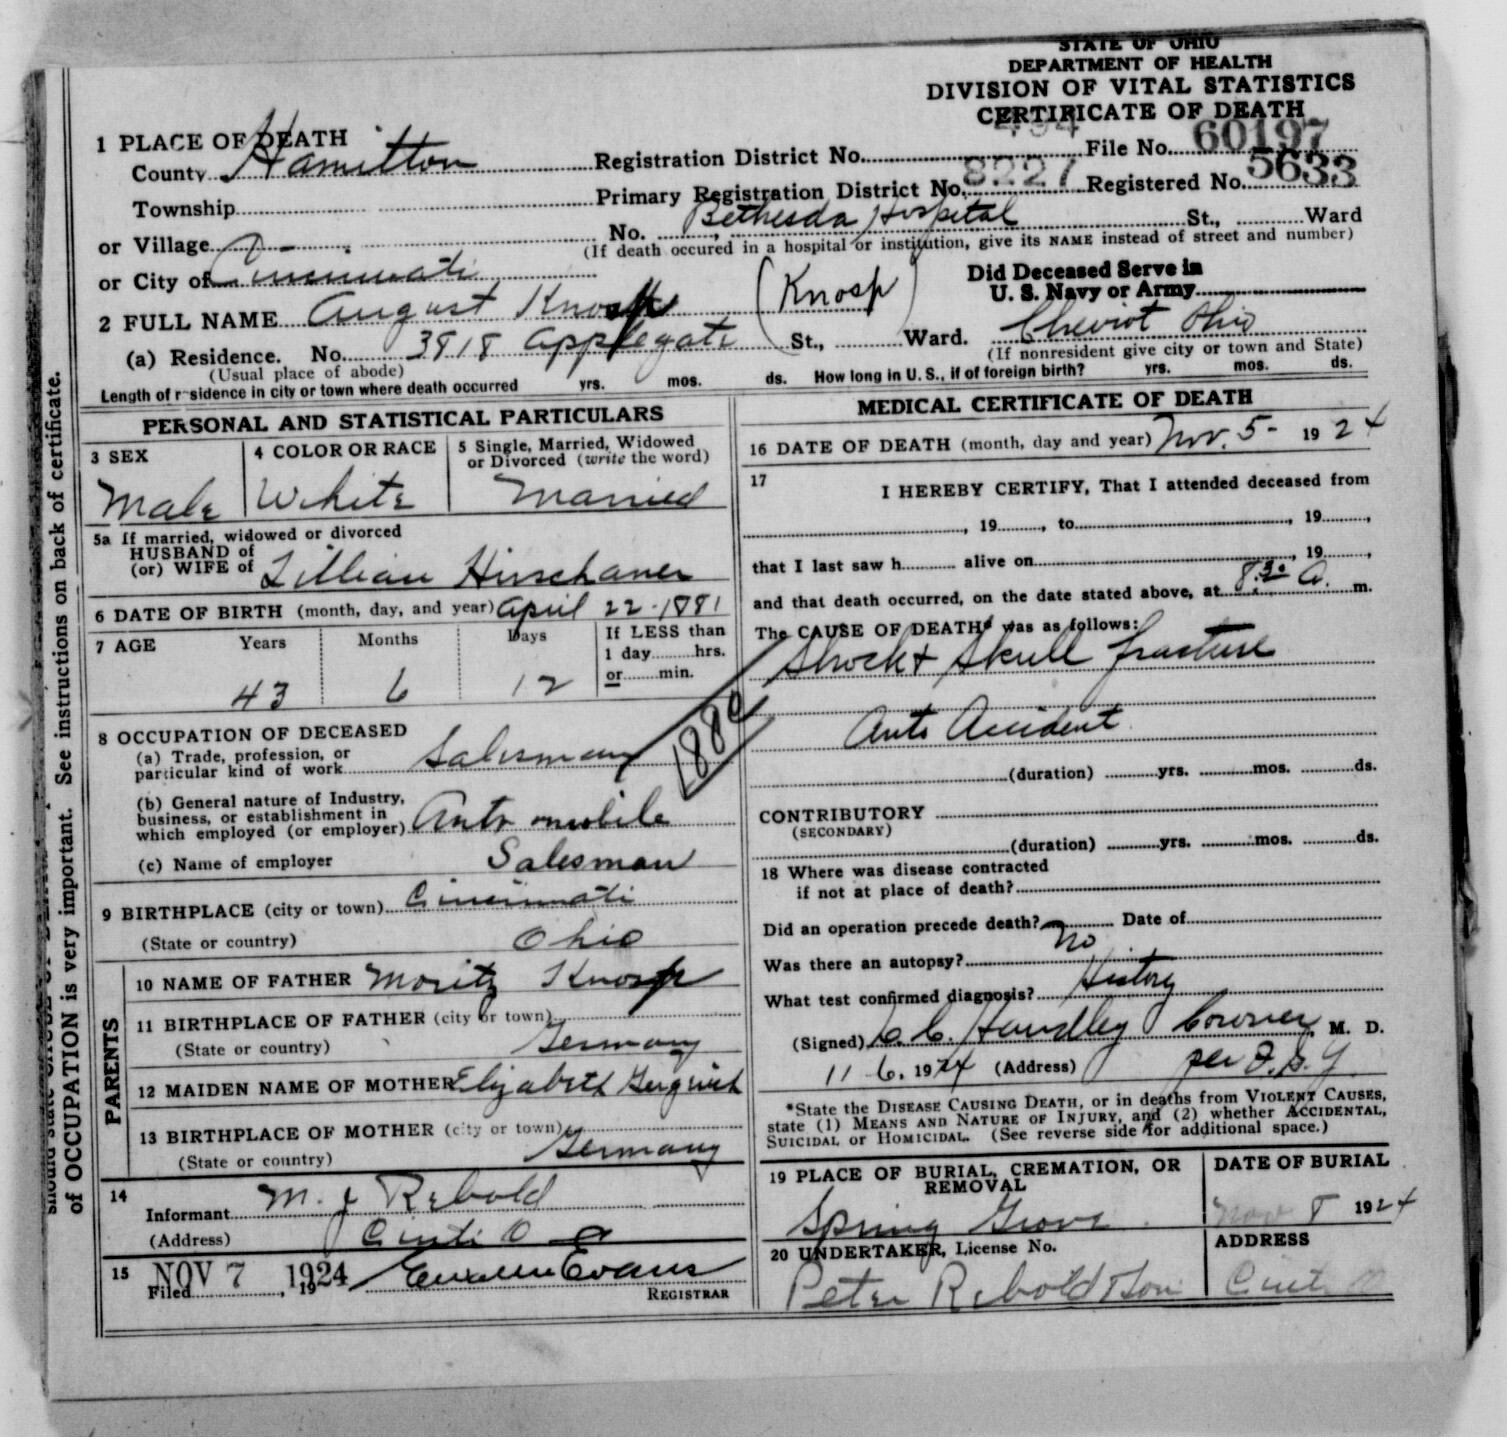 STATE OF OHIO
DEPARTMENT OF HEALTH
DIVISION OF VITAL STATISTICS
CERTIFICATE OF DEATH
1 PLACE OF DEATH
County Hamilton Registration District No. 494 File No. 60197
Township Primary Registration District No. 8227 Registered No. 5633
or Village No. Bethesda Hospital St., Ward
(If death occured in a hospital or institution, give its NAME instead of street and number)
or City of Cincinnati
Did Deceased Serve in
U. S. Navy or Army
2 FULL NAME August Knosp (Knosp)
(a) Residence. No. 3818 Applegate St., Ward. Cheviot Ohio
(Usual place of abode) (If nonresident give city or town and State)
Length of residence in city or town where death occurred yrs. mos. ds. How long in U. S., if of foreign birth? yrs. mos. ds.
PERSONAL AND STATISTICAL PARTICULARS
3 SEX 4 COLOR OR RACE 5 Single, Married, Widowed
or Divorced (write the word)
Male White Married
5a If married, widowed or divorced
HUSBAND of
(or) WIFE of Lillian Hirschauer
6 DATE OF BIRTH (month, day, and year) April 22-1881
7 AGE Years Months Days If LESS than
1 day hrs.
or min.
43 6 12
8 OCCUPATION OF DECEASED
(a) Trade, profession, or
particular kind of work Salesman
188c
(b) General nature of Industry,
business, or establishment in
which employed (or employer) Automobile
(c) Name of employer Salesman
9 BIRTHPLACE (city or town) Cincinnati
(State or country) Ohio
PARENTS
10 NAME OF FATHER Moritz Knosp
11 BIRTHPLACE OF FATHER (city or town)
(State or country) Germany
12 MAIDEN NAME OF MOTHER Elizabeth
13 BIRTHPLACE OF MOTHER (city or town)
(State or country) Germany
14
Informant M. J Rebold
(Address) Cinti O
15 NOV 7 1924
Filed , 19 Evans
REGISTRAR
MEDICAL CERTIFICATE OF DEATH
16 DATE OF DEATH (month, day and year) Nov. 5- 1924
17 I HEREBY CERTIFY, That I attended deceased from
, 19 , to , 19 ,
that I last saw h alive on , 19 ,
and that death occurred, on the date stated above, at 8.30 A. m.
The CAUSE OF DEATH* was as follows:
Shock + Skull fracture
Auto Accident
(duration) yrs. mos. ds.
CONTRIBUTORY
(SECONDARY)
(duration) yrs. mos. ds.
18 Where was disease contracted
if not at place of death?
Did an operation precede death? Date of
Was there an autopsy? No
What test confirmed diagnosis? History
(Signed) C. C. Handley Coroner M. D.
11 6. 1924 (Address) per F. S. Y.
*State the DISEASE CAUSING DEATH, or in deaths from VIOLENT CAUSES,
state (1) MEANS AND NATURE OF INJURY, and (2) whether ACCIDENTAL,
SUICIDAL or HOMICIDAL. (See reverse side for additional space.)
19 PLACE OF BURIAL, CREMATION, OR
REMOVAL
DATE OF BURIAL
Spring Grove Nov 8 1924
20 UNDERTAKER, License No. ADDRESS
Peter Rebold & Son Cinti O
of OCCUPATION is very important. See instructions on back of certificate.